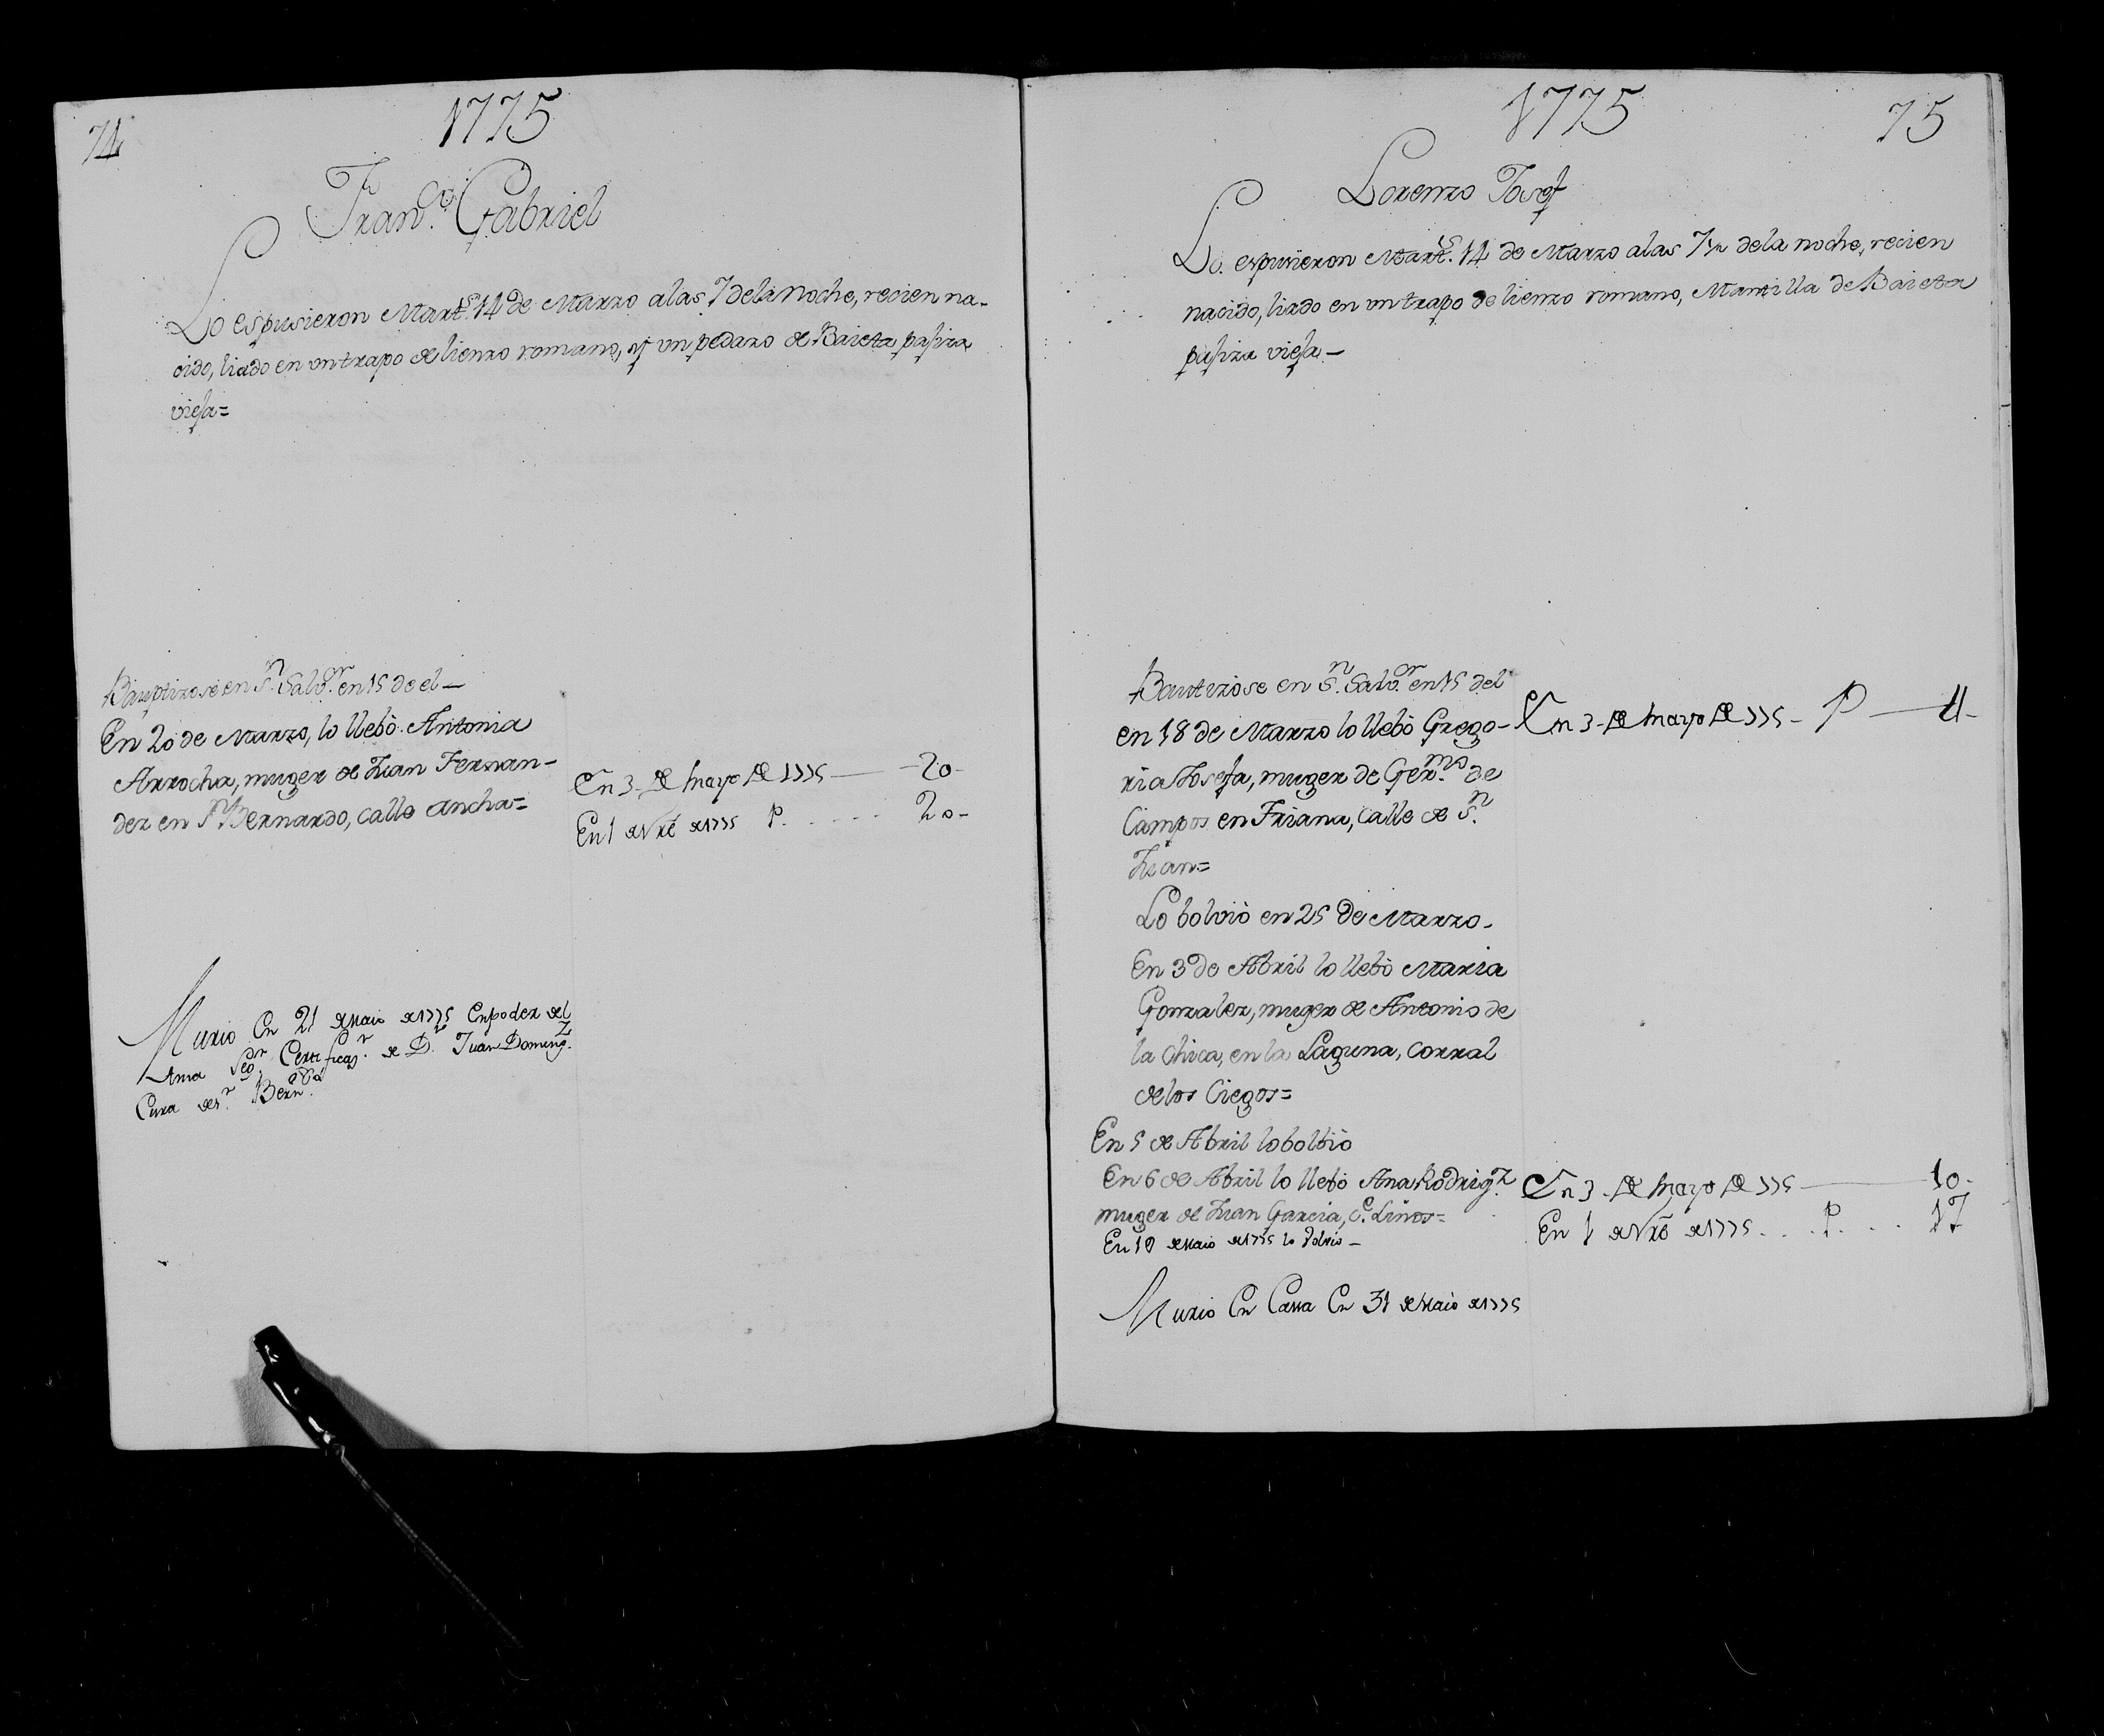 74
1775
Fran.co Gabriel
Lo espusieron Mart.s 14 de Marzo a las 7 de la Noche, recien na-
cido, liado en un trapo de lienzo romano, y un pedazo de Baieta pajiza
vieja=
Bauptizose en S.n Salv.or en 15 de el—
En 20 de Marzo, lo llebò Antonia
Arrocha, muger de Juan Fernan-
dez en S.n Bernardo, calle ancha=
En 3 de mayo de 1775 — 20-
En 1 de Nre de 1775 P. . . . . . 20-
Murio En 21 de Maio de 1775 En poder del
Ama Seg.n Certificaz.n de D.n Juan Doming.z
Cura de S.n Bern.do
1775
75
Lorenzo Josef
Lo espusieron Mart.s 14 de Marzo a las 7 de la noche, recien
nacido, liado en un trapo de lienzo romano, Mantilla de Baieta
pajiza vieja—
Bautizose en S.n Salv.or en 15 del
en 18 de Marzo lo llebò Grego-
ria Josefa, muger de Ger.mo de
Campos en Triana, calle de S.n
Juan=
En 3 de mayo de 775- P — 4-
Lo bolviò en 25 de Marzo-
En 3 de Abril lo llebò Maria
Gonzalez, muger de Antonio de
la Chica, en la Laguna, corral
de los Ciegos=
En 5 de Abril lo bolbio
En 6 de Abril lo llebò Ana Rodrig.z
muger de Juan Garcia, C.e Linos=
En 3 de mayo de 775 — 10-
En 1 de Nre de 1775 . . . P. . . . 17
En 10 de Maio de 1775 lo bolvio—
Murio En Cassa En 31 de Maio de 1775